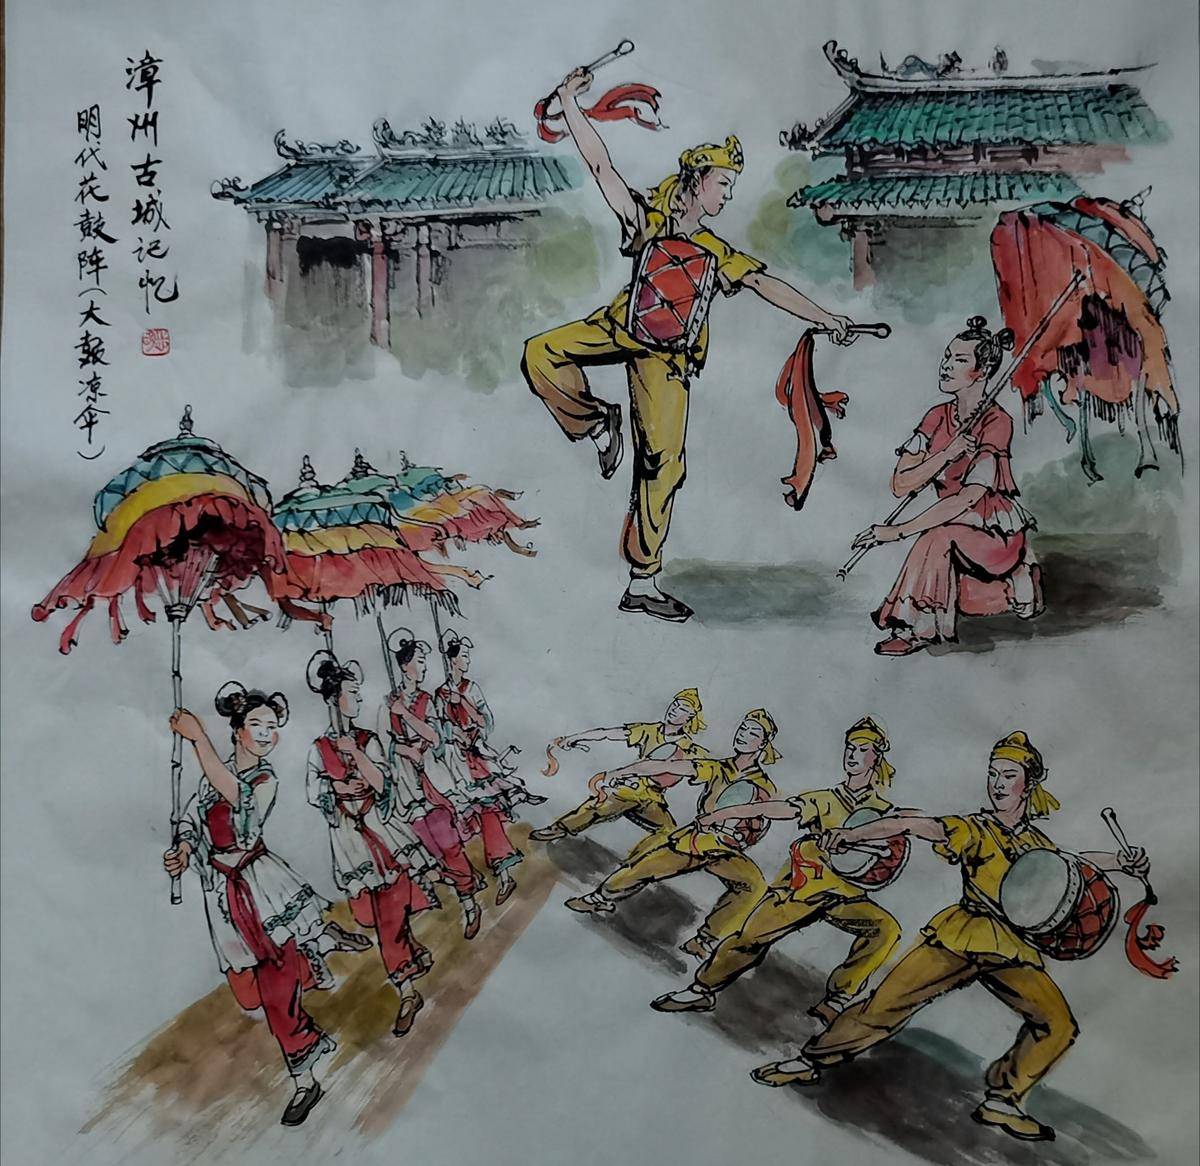 漳州古城记忆
明代花鼓阵(大鼓凉伞)